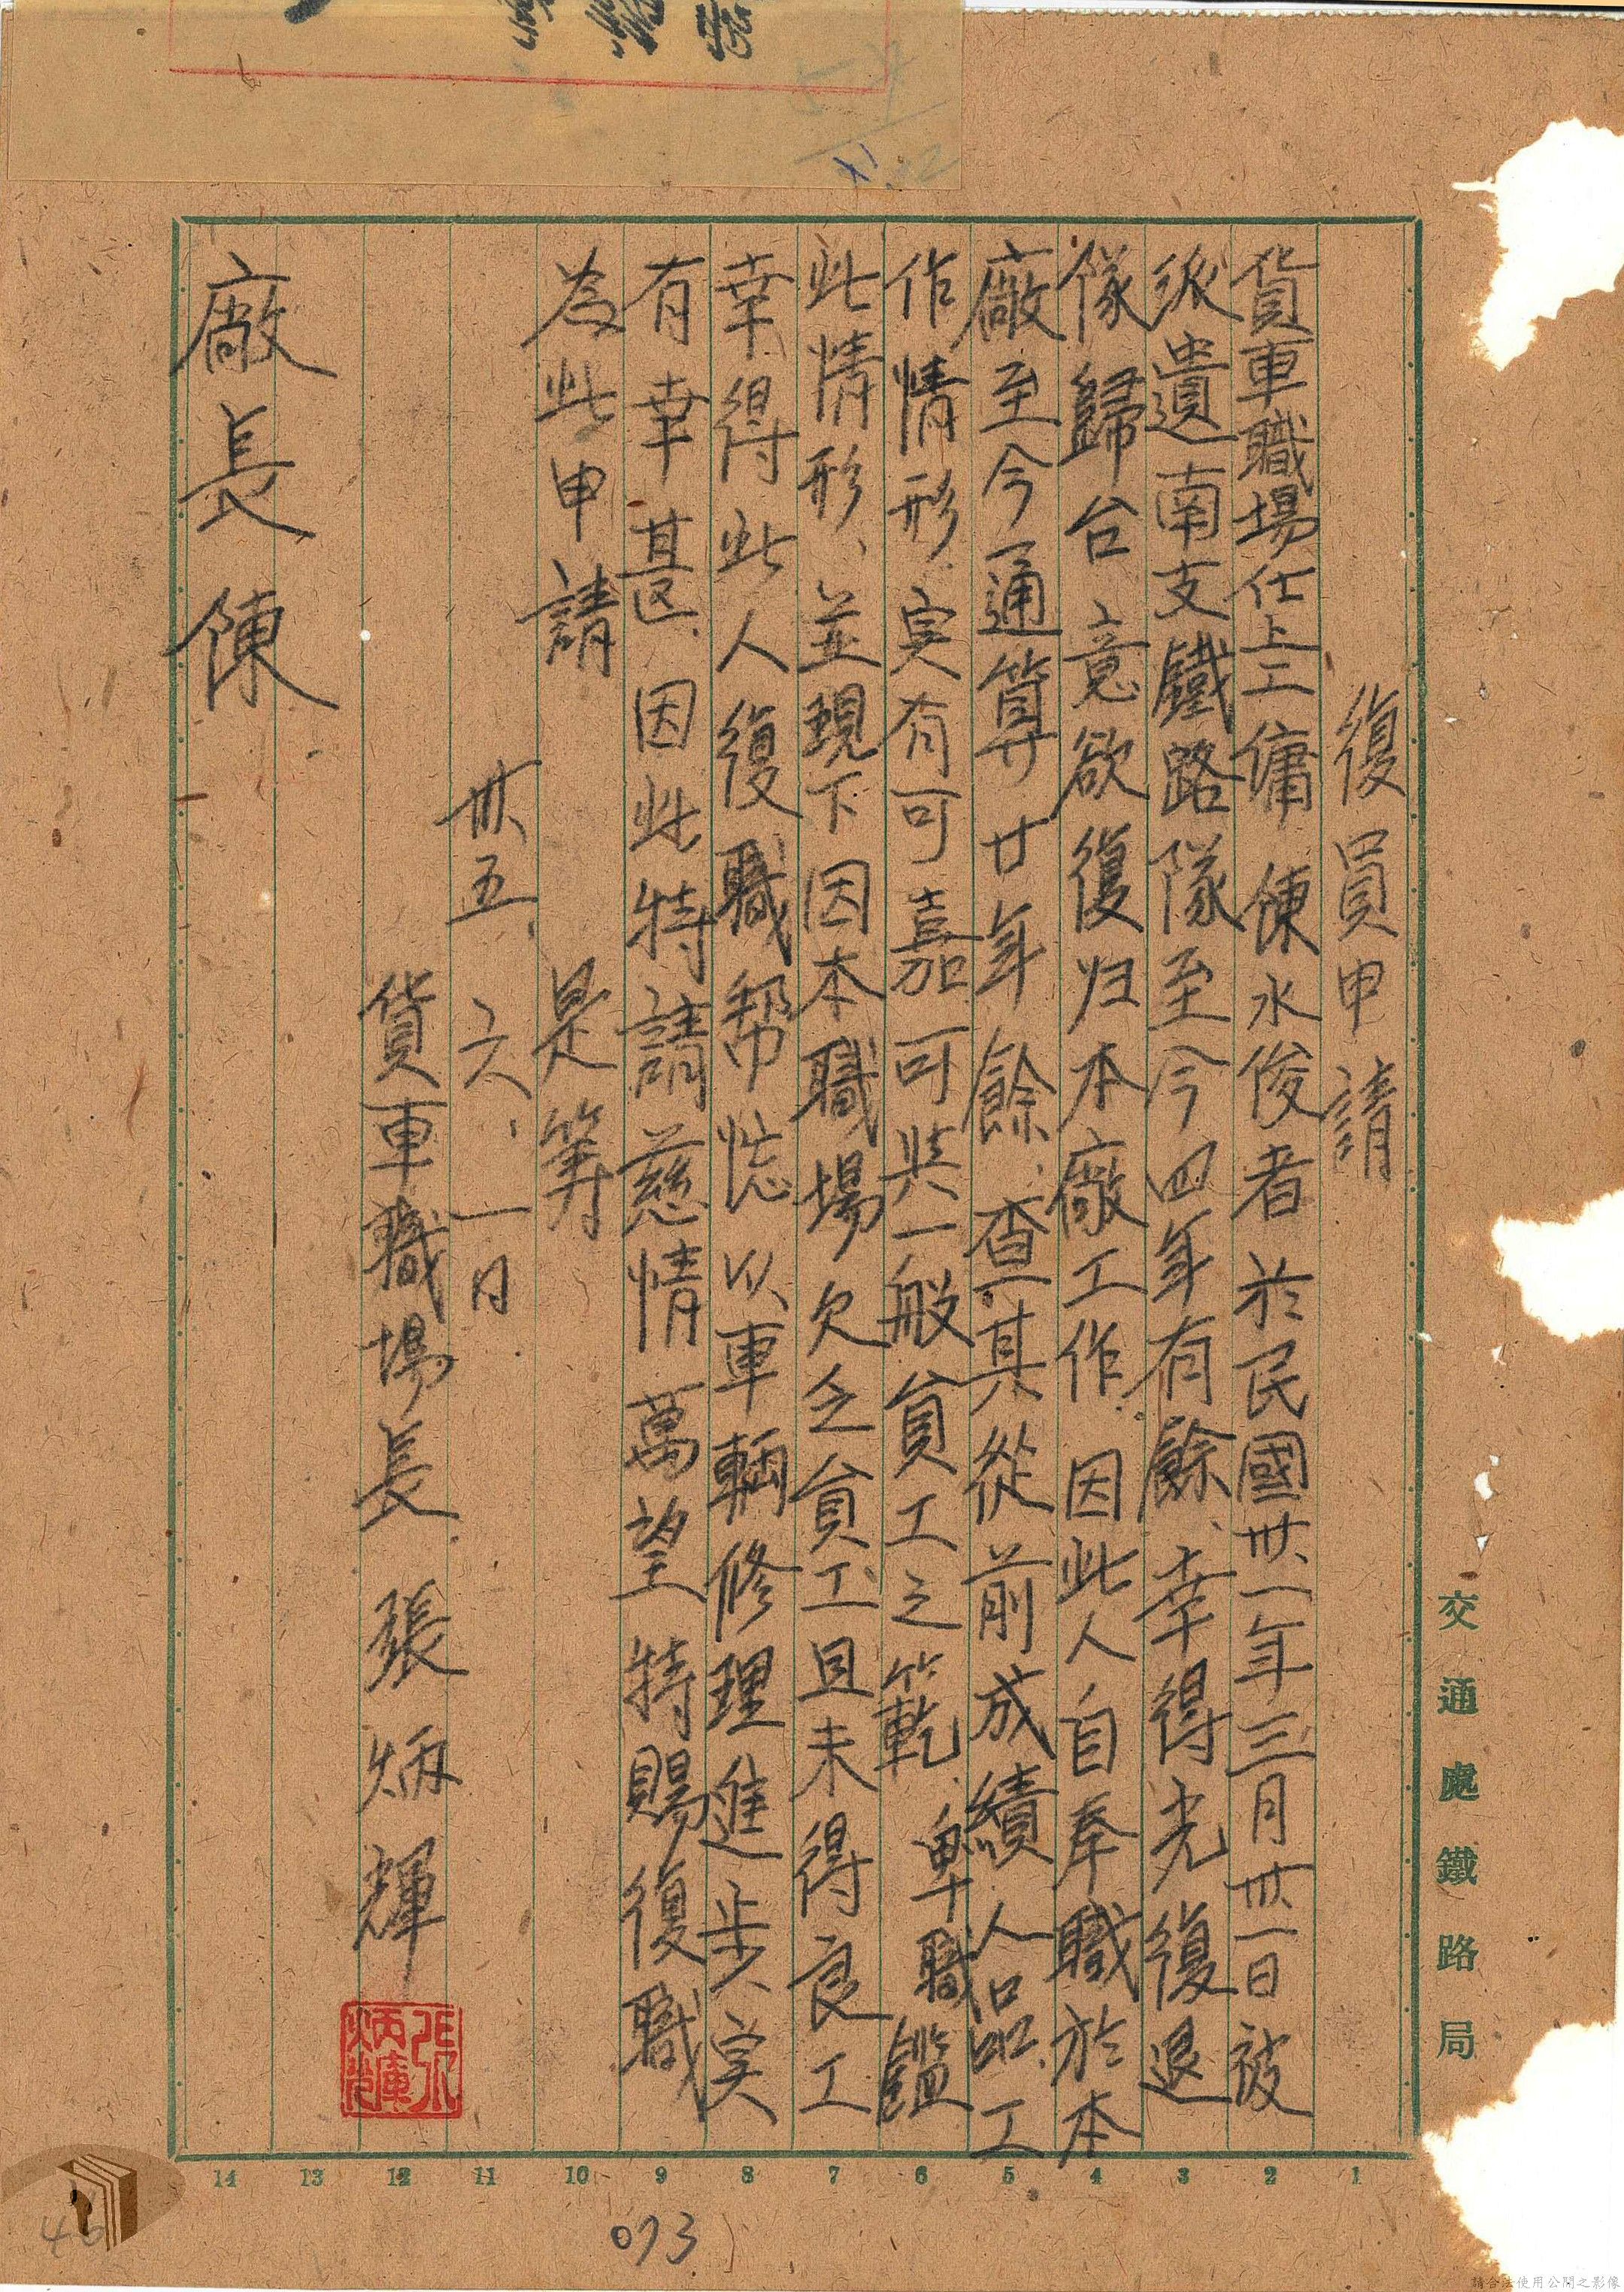 復員申請
貨車職場仕上工傭 陳水俊者於民國卅一年三月卅一日被
派遣南支鐵路隊至今四年有餘、幸得光復退
隊歸台意欲復归本廠工作 因此人自奉職於本
廠至今通算廿年餘、查其從前成績人品工
作情形実有可嘉可獎一般員工之範、卑職鑑
此情形、並現下因本職場欠乏員工且未得良工
幸得此人復職帮忙以車輛修理進步実
有幸甚、因此特請慈情萬望特賜復職
為此申請 是筭
卅五、六、一日
貨車職場長 張炳輝
張炳輝
廠長陳
交通處鐵路局
1 2 3 4 5 6 7 8 9 10 11 12 13 14
073
46
請合法使用公開之影像